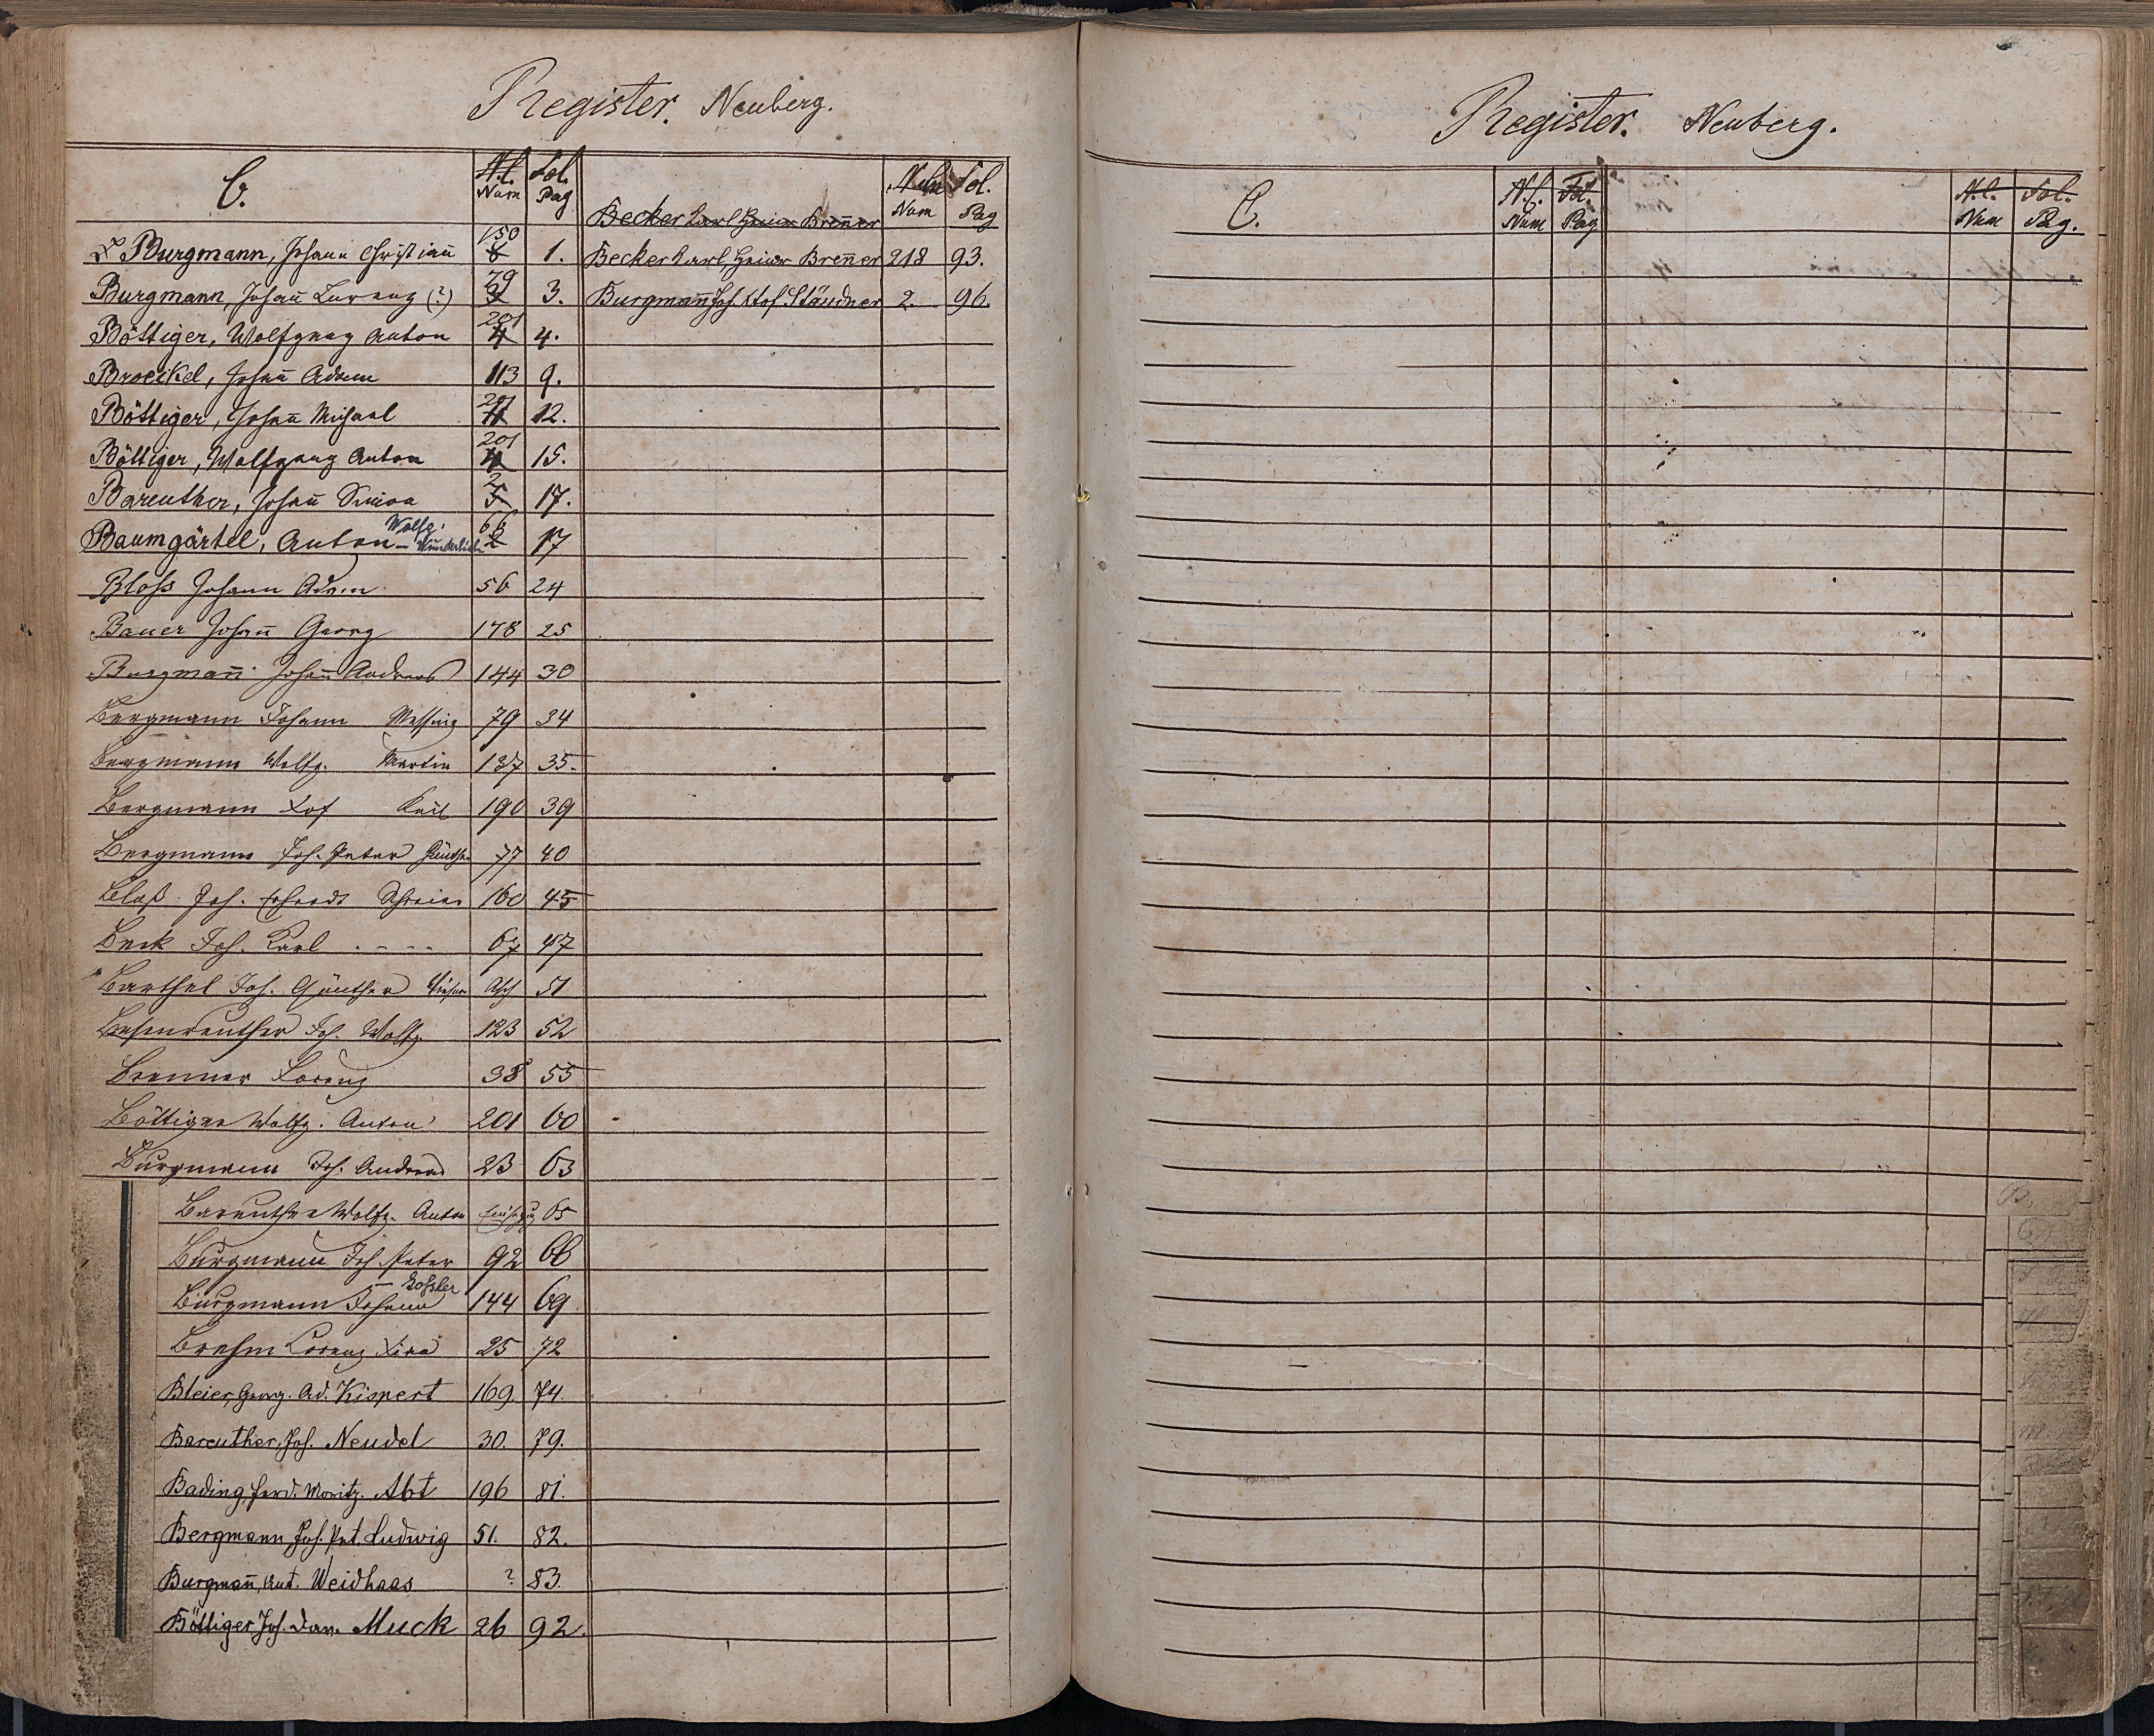 Register. Neuberg.
B.
Num Pag
Becker Karl Heinr Brenner
Num Pag
Burgmann, Johann Christian 150 8 1.
Becker Karl, Heinr Brenner 218 93.
Burgmann, Johann Lorenz (?) 79 3.
Burgmañ Joh. Xtof. Ständner 2. 96.
Böttiger, Wolfgang Anton 201 4 4.
Broeckel, Johañ Adam 113 9.
Böttiger, Johañ Michael 201 12.
Böttiger, Wolfgang Anton 201 4 15.
Bareuther, Johañ Simon 2 5 17.
Wolfg.
Baumgärtel, Anton – Wunderlich 66 2 17
Bloß Johann Adam 56 24
Bauer Johañ Georg 178 25
Burgmañ Johañ Andreas 144 30
Bergmann Johann Messing 79 34
Bergmann Wolfg. Martin 137 35.
Bergmann Xof Keil 190 39
Bergmann Joh. Peter Günther 77 40
Bloß Joh. Erhardt 160 45
Beck Joh. Karl 67 47
Barthel Joh. Günther Asch 51
Joh. Wolfg. 123 52
Brenner Lorenz 38 55
Böttiger Wolfg. Anton 201 60
Burgmann Joh. Andreas 23 63
Bareuther Wolfg. Anton 65
Burgmann Joh Peter 92 66
– Kossler
Burgmann Johann 144 69
Brehm Lorenz 25 72
Bleier, Georg. Ad. Kispert 169. 74.
Bareuther, Joh. Neudel 30. 79.
Bading, Ferd. Moritz. Abt 196 81.
Bergmann, Joh. Pet. Ludwig 51. 82.
Burgmañ, Ant. Weidhaas ? 83.
Böttiger Joh. Dan. Muck 26 92.
Register. Neuberg.
C.
N.C. Fol.
Num Pag
N.C. Fol.
Num Pag.